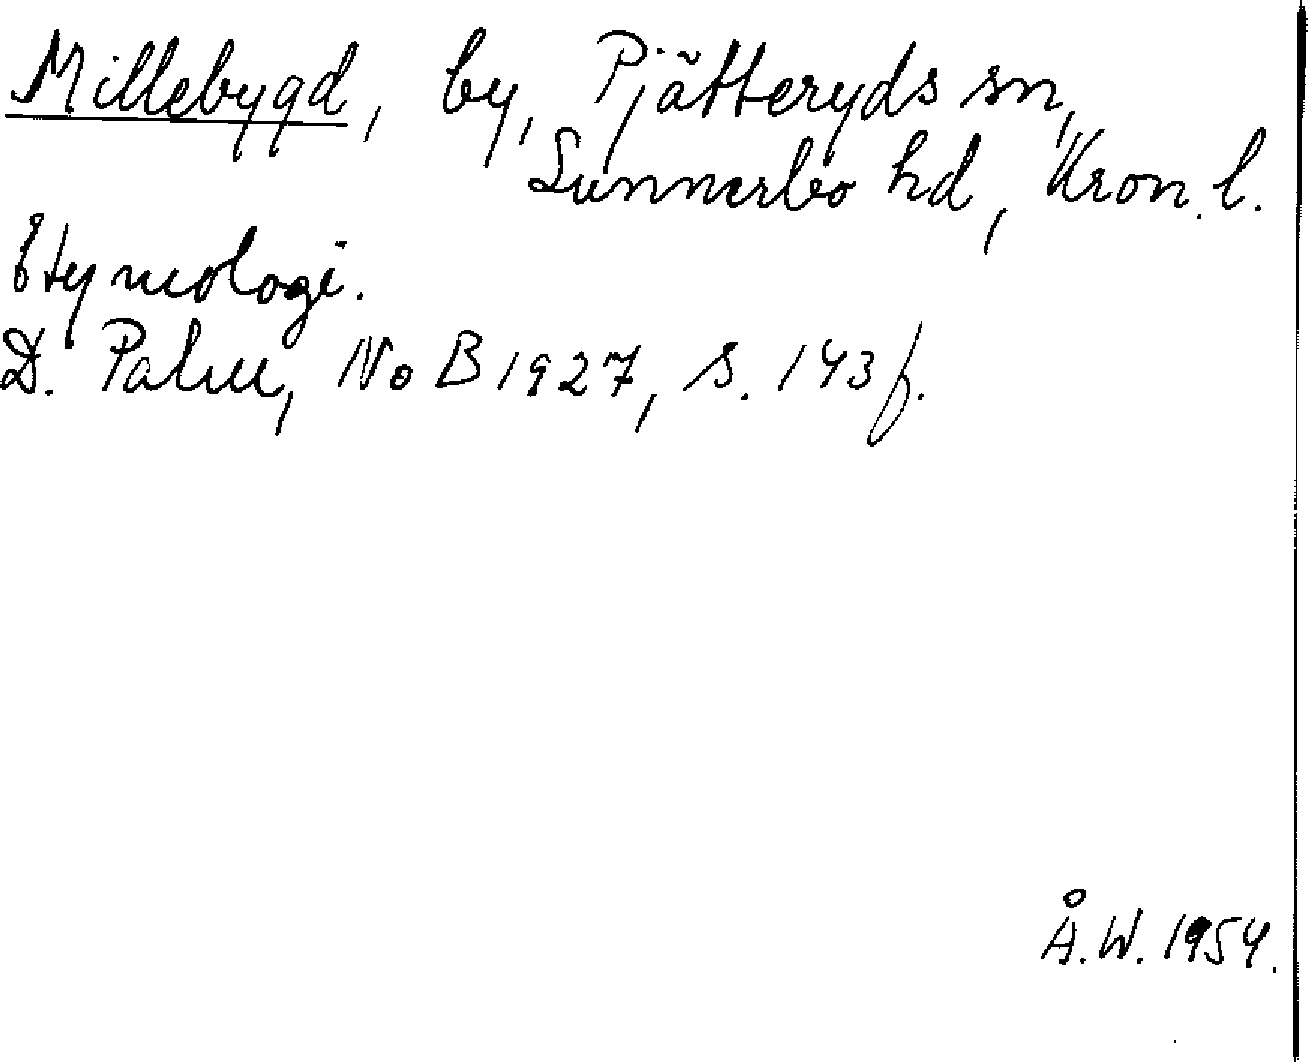 Millebygd, by, Pjätteryds sn,
Sunnerbo hd, Kron. l.
Etymologi.
D. Palm, NoB 1927, s. 143 f.
Å.W. 1954.